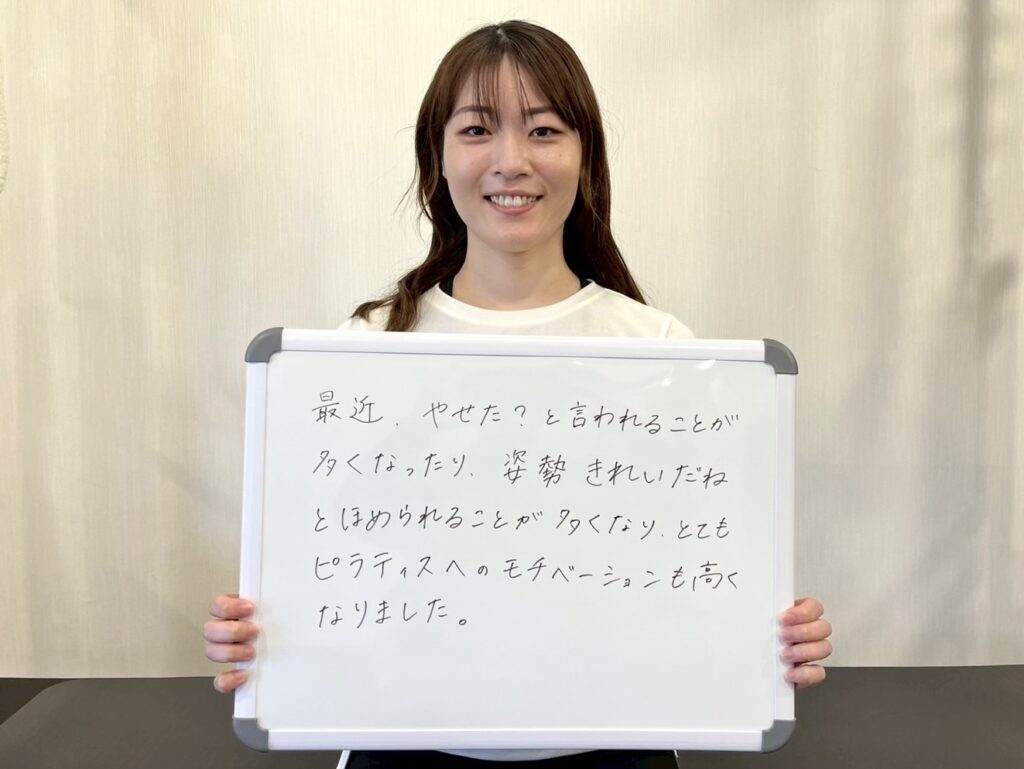 最近、やせた？と言われることが
多くなったり、姿勢きれいだね
とほめられることが多くなり、とても
ピラティスへのモチベーションも高く
なりました。